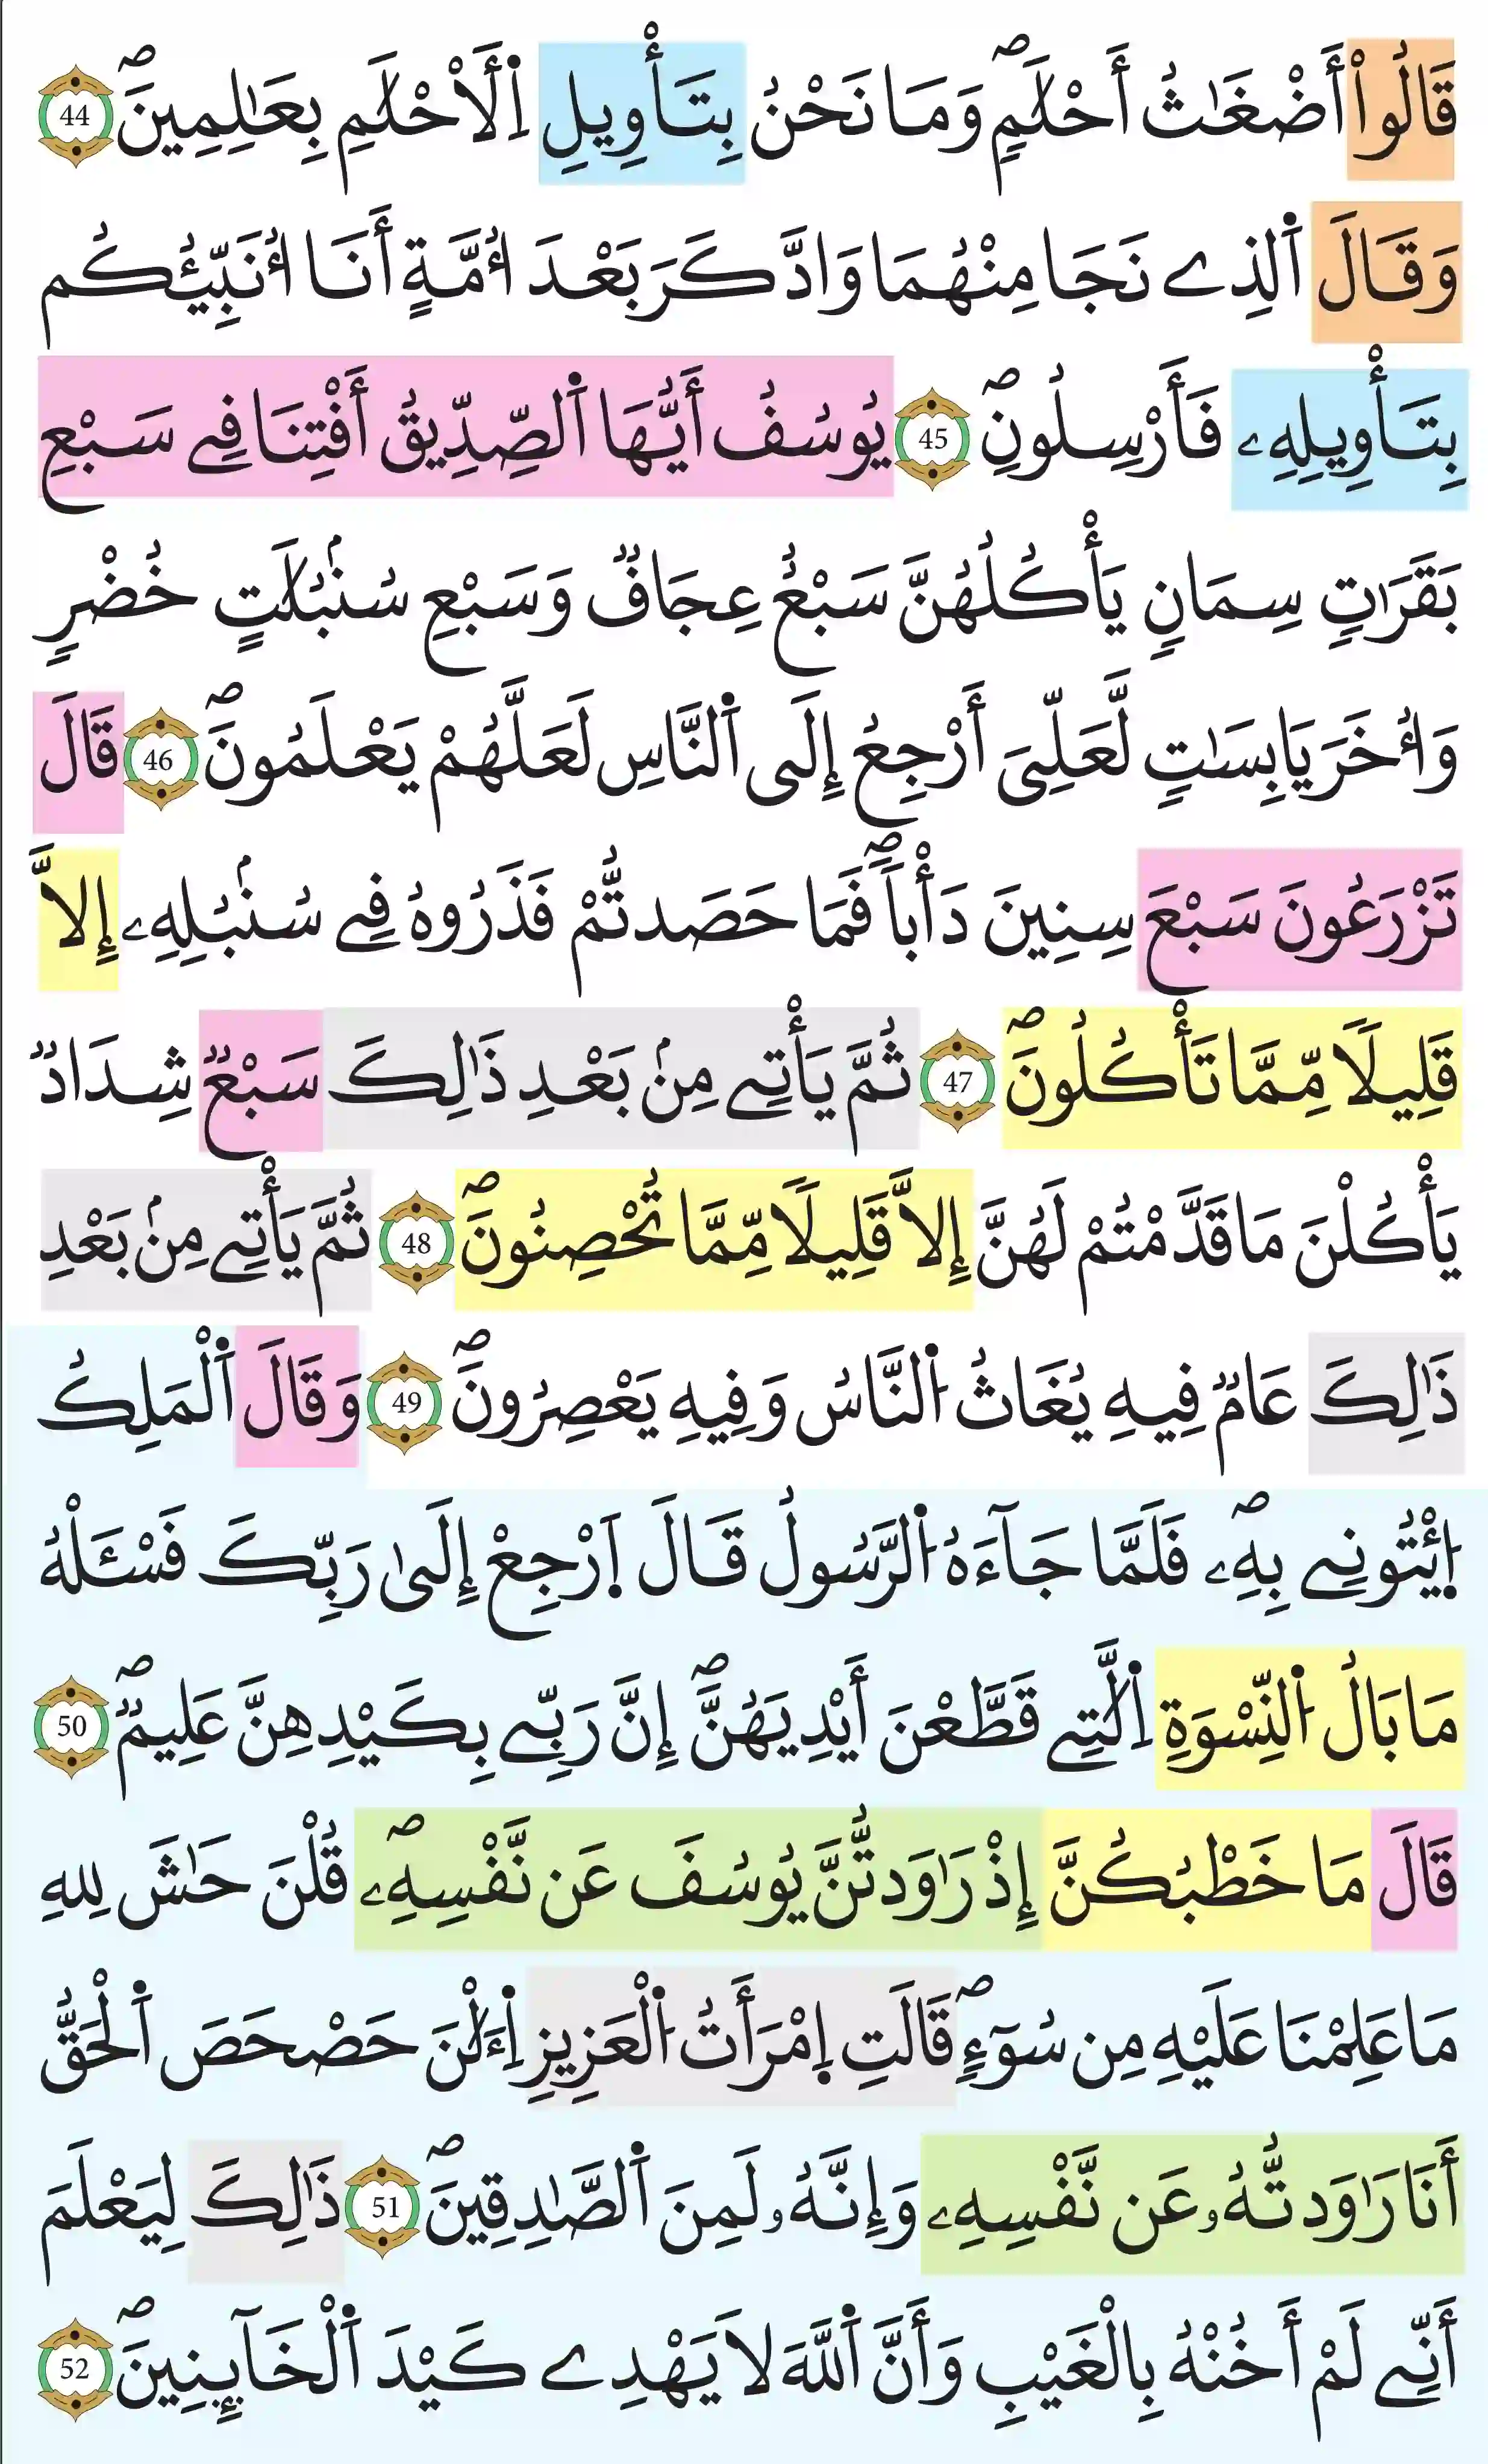 قَالُوٓاْ أَضْغَٰثُ أَحْلَٰمٖۖ وَمَا نَحْنُ بِتَأْوِيلِ اِ۬لَأحْلَٰمِ بِعَٰلِمِينَۖ 44
وَقَالَ اَ۬لذِے نَجَا مِنْهُمَا وَادَّكَرَ بَعْدَ أُمَّةٍ أَنَا أُنَبِّئُكُم
بِتَأْوِيلِهِۦ فَأَرْسِلُونِۖ 45 يُوسُفُ أَيُّهَا اَ۬لصِّدِّيقُ أَفْتِنَا فِے سَبْعِ
بَقَرَٰتٖ سِمَانٖ يَأْكُلُهُنَّ سَبْعٌ عِجَافٞ وَسَبْعِ سُنۢبُلَٰتٍ خُضْرٖ
وَأُخَرَ يَابِسَٰتٖ لَّعَلِّيَ أَرْجِعُ إِلَى اَ۬لنَّاسِ لَعَلَّهُمْ يَعْلَمُونَۖ 46 قَالَ
تَزْرَعُونَ سَبْعَ سِنِينَ دَأْباٗۖ فَمَا حَصَدتُّمْ فَذَرُوهُ فِے سُنۢبُلِهِۦ إِلَّا
قَلِيلاٗ مِّمَّا تَأْكُلُونَۖ 47 ثُمَّ يَأْتِے مِنۢ بَعْدِ ذَٰلِكَ سَبْعٞ شِدَادٞ
يَأْكُلْنَ مَا قَدَّمْتُمْ لَهُنَّ إِلَّا قَلِيلاٗ مِّمَّا تُحْصِنُونَۖ 48 ثُمَّ يَأْتِے مِنۢ بَعْدِ
ذَٰلِكَ عَامٞ فِيهِ يُغَاثُ اُ۬لنَّاسُ وَفِيهِ يَعْصِرُونَۖ 49 وَقَالَ اَ۬لْمَلِكُ
اُ۪يتُونِے بِهِۦۖ فَلَمَّا جَآءَهُ اُ۬لرَّسُولُ قَالَ اَ۪رْجِعْ إِلَىٰ رَبِّكَ فَسْـَٔلْهُ
مَا بَالُ اُ۬لنِّسْوَةِ اِ۬لَّٰتِے قَطَّعْنَ أَيْدِيَهُنَّۖ إِنَّ رَبِّے بِكَيْدِهِنَّ عَلِيمٞۖ 50
قَالَ مَا خَطْبُكُنَّ إِذْ رَٰوَدتُّنَّ يُوسُفَ عَن نَّفْسِهِۦۖ قُلْنَ حَٰشَ لِلهِ
مَا عَلِمْنَا عَلَيْهِ مِن سُوٓءٖۖ قَالَتِ اِ۪مْرَأَتُ اُ۬لْعَزِيزِ اِ۬لَٰٔنَ حَصْحَصَ اَ۬لْحَقُّ
أَنَا رَٰوَدتُّهُۥ عَن نَّفْسِهِۦ وَإِنَّهُۥ لَمِنَ اَ۬لصَّٰدِقِينَۖ 51 ذَٰلِكَ لِيَعْلَمَ
أَنِّے لَمْ أَخُنْهُ بِالْغَيْبِ وَأَنَّ اَ۬للَّهَ لَا يَهْدِے كَيْدَ اَ۬لْخَآئِنِينَۖ 52